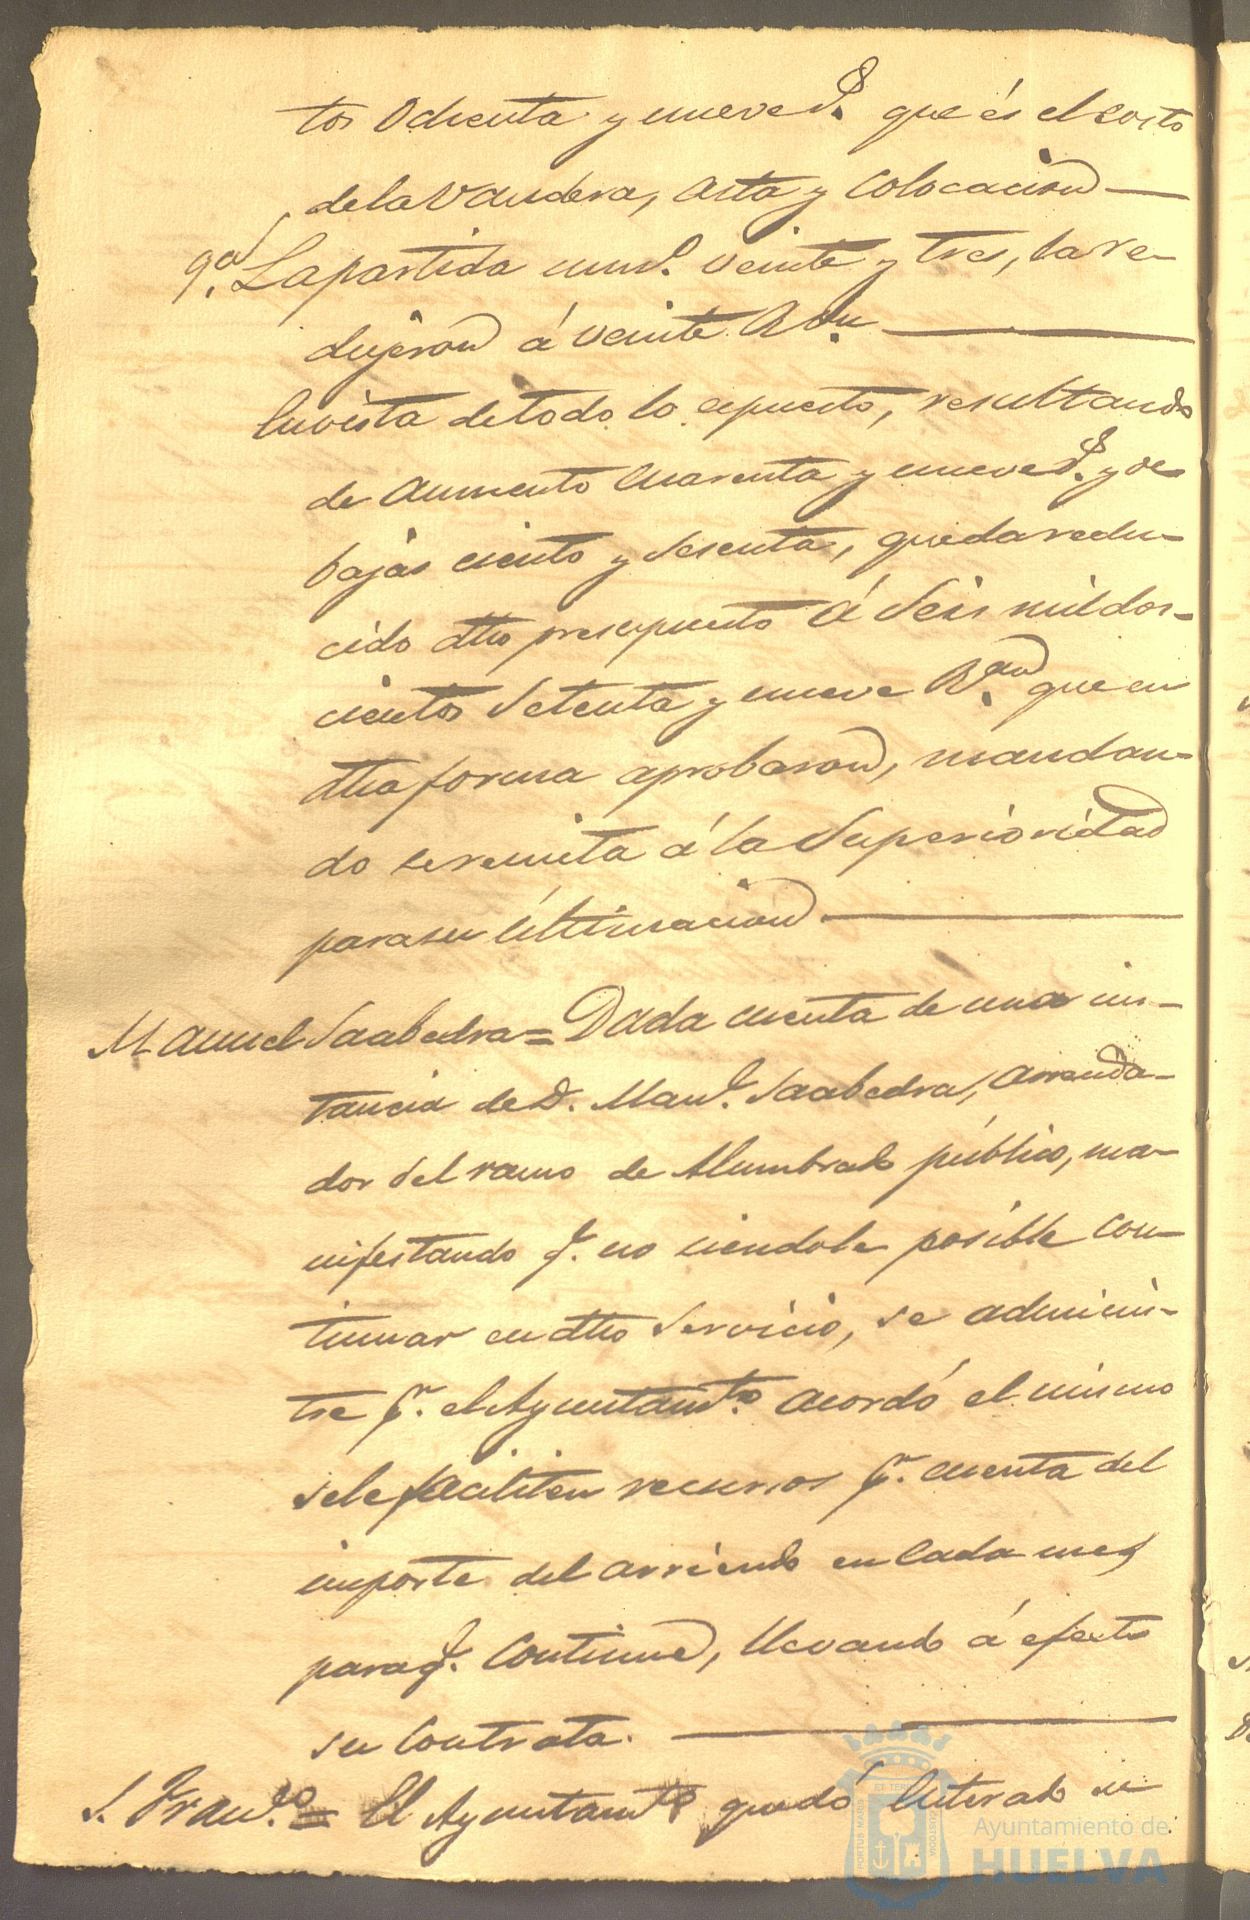 tos Ochenta y nueve r.s que és el costo
de la Vandera, asta y Colocacion
9.a La partida num.o veinte y tres, la re-
dujeron á veinte R.s vn
En vista de todo lo espuesto, resultando
de aumento Cuarenta y nueve r.s y de
bajas ciento y sesenta, queda redu-
cido dho presupuesto á Seis mil dos-
cientos Setenta y nueve R.s que en
dha forma aprobaron, mandan-
do se remita á la Superioridad
para su Ultimacion
Manuel Saabedra = Dada cuenta de una ins-
tancia de D. Man.l Saabedra, arrenda-
dor del ramo de Alumbrado público, ma-
nifestando q.e no siendole posible con-
tinuar en dho Servicio, se adminis-
tre p.r el Ayuntam.to acordó el mismo
se le faciliten recursos p.r cuenta del
importe del arriendo en Cada mes
para q.e Continue, llevando á efecto
su Contrata.
S. Fran.co = El Ayuntam.to quedó Enterado de
Ayuntamiento de
HUELVA